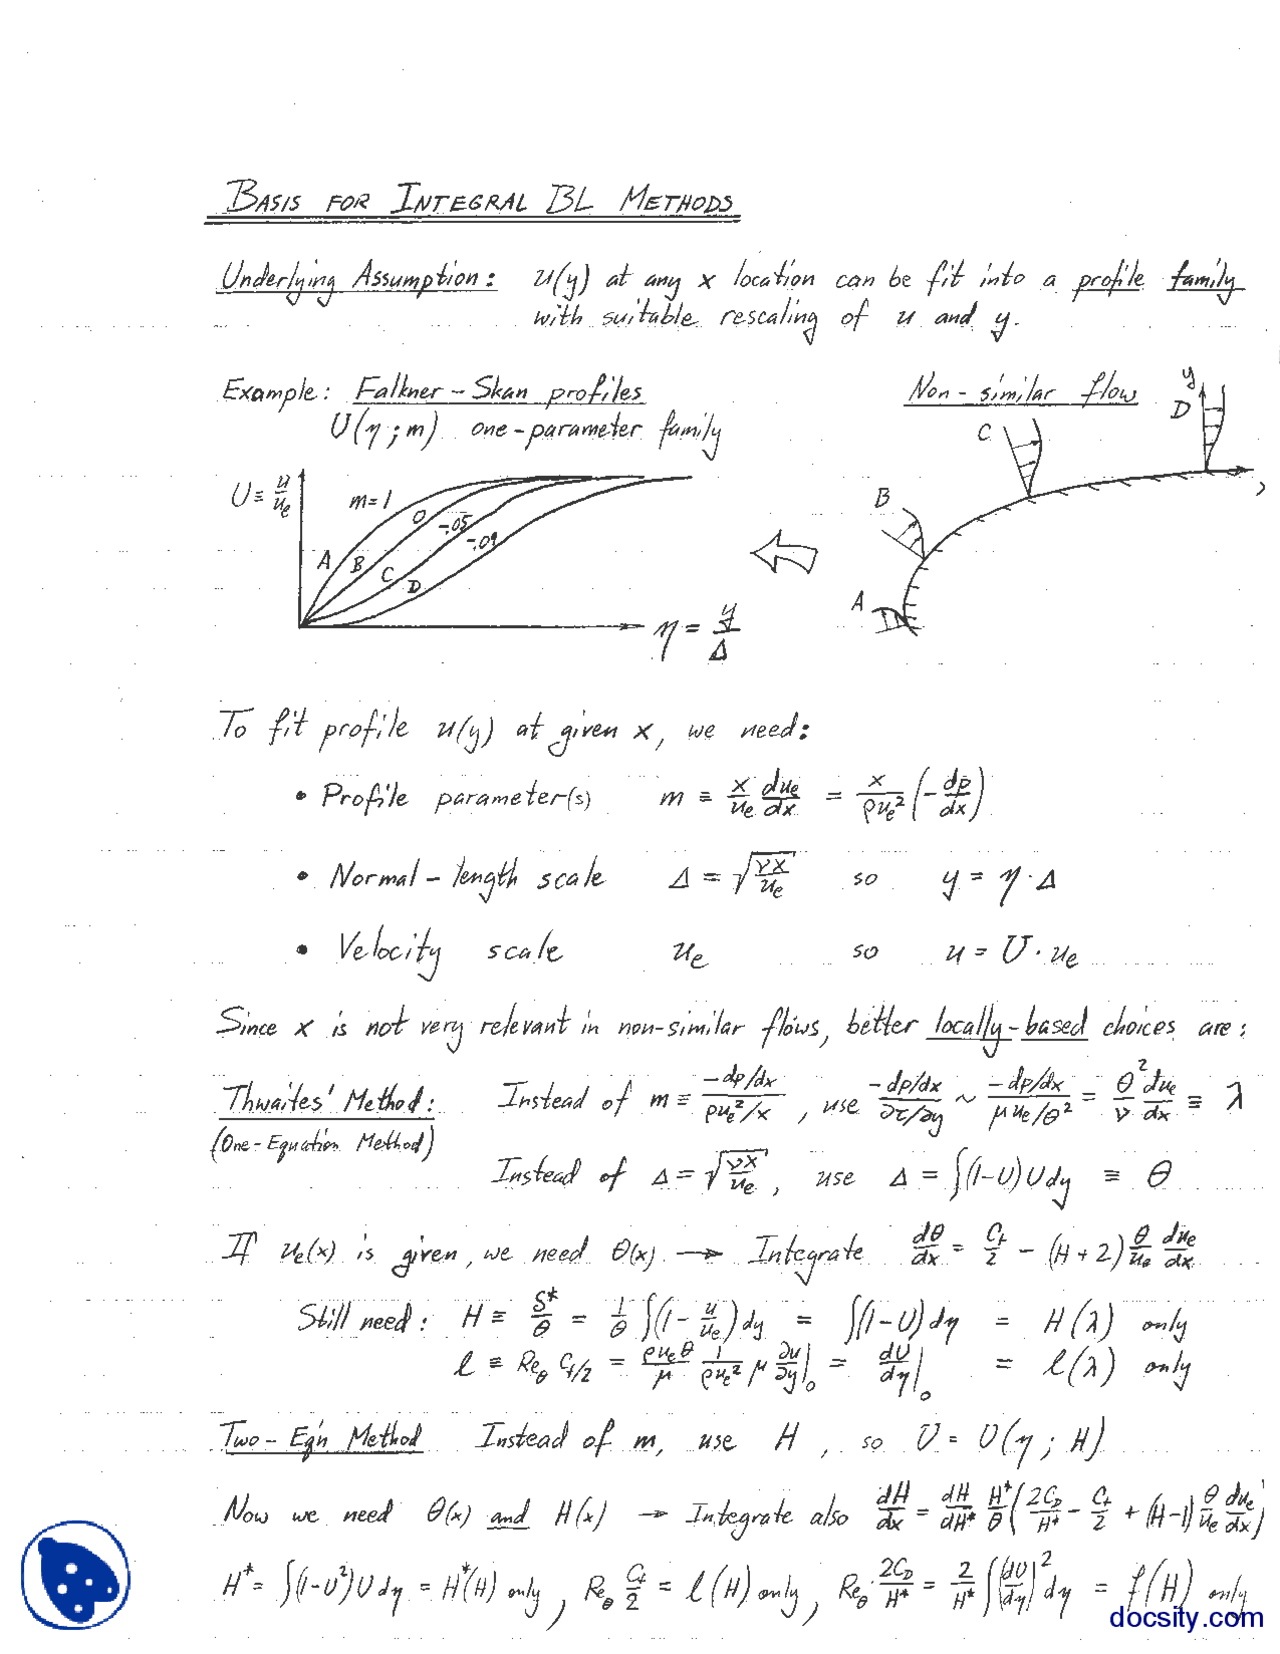 BASIS FOR INTEGRAL BL METHODS
Underlying Assumption: u(y) at any x location can be fit into a profile family
with suitable rescaling of u and y.
Example: Falkner-Skan profiles
U(η; m) one-parameter family
Non-similar flow
y
D
C
B
A
U ≡ u/u_e
m=1
0
-.05
-.09
A
B
C
D
η = y/Δ
To fit profile u(y) at given x, we need:
• Profile parameter(s) m ≡ x/u_e du_e/dx = x/ρu_e² (-dp/dx)
• Normal-length scale Δ = √(νx/u_e) so y = η·Δ
• Velocity scale u_e so u = U·u_e
Since x is not very relevant in non-similar flows, better locally-based choices are:
Thwaites' Method: Instead of m ≡ (-dp/dx)/(ρu_e²/x), use (-dp/dx)/(∂τ/∂y) ~ (-dp/dx)/(μu_e/θ²) = θ²/ν du_e/dx ≡ λ
(One-Equation Method)
Instead of Δ = √(νx/u_e), use Δ = ∫(1-U)U dy ≡ θ
If u_e(x) is given, we need θ(x) → Integrate dθ/dx = C_f/2 - (H+2) θ/u_e du_e/dx
Still need: H ≡ δ*/θ = 1/θ ∫(1 - u/u_e) dy = ∫(1-U) dη = H(λ) only
l ≡ Re_θ C_f/2 = ρu_eθ/μ 1/ρu_e² μ ∂u/∂y|₀ = dU/dη|₀ = l(λ) only
Two-Eq'n Method Instead of m, use H, so U = U(η; H)
Now we need θ(x) and H(x) → Integrate also dH/dx = dH/dH* H*/θ (2C_D/H* - C_f/2 + (H-1) θ/u_e du_e/dx)
H* = ∫(1-U²)U dη = H*(H) only, Re_θ C_f/2 = l(H) only, Re_θ · 2C_D/H* = 2/H* ∫(dU/dη)² dη = f(H) only
docsity.com